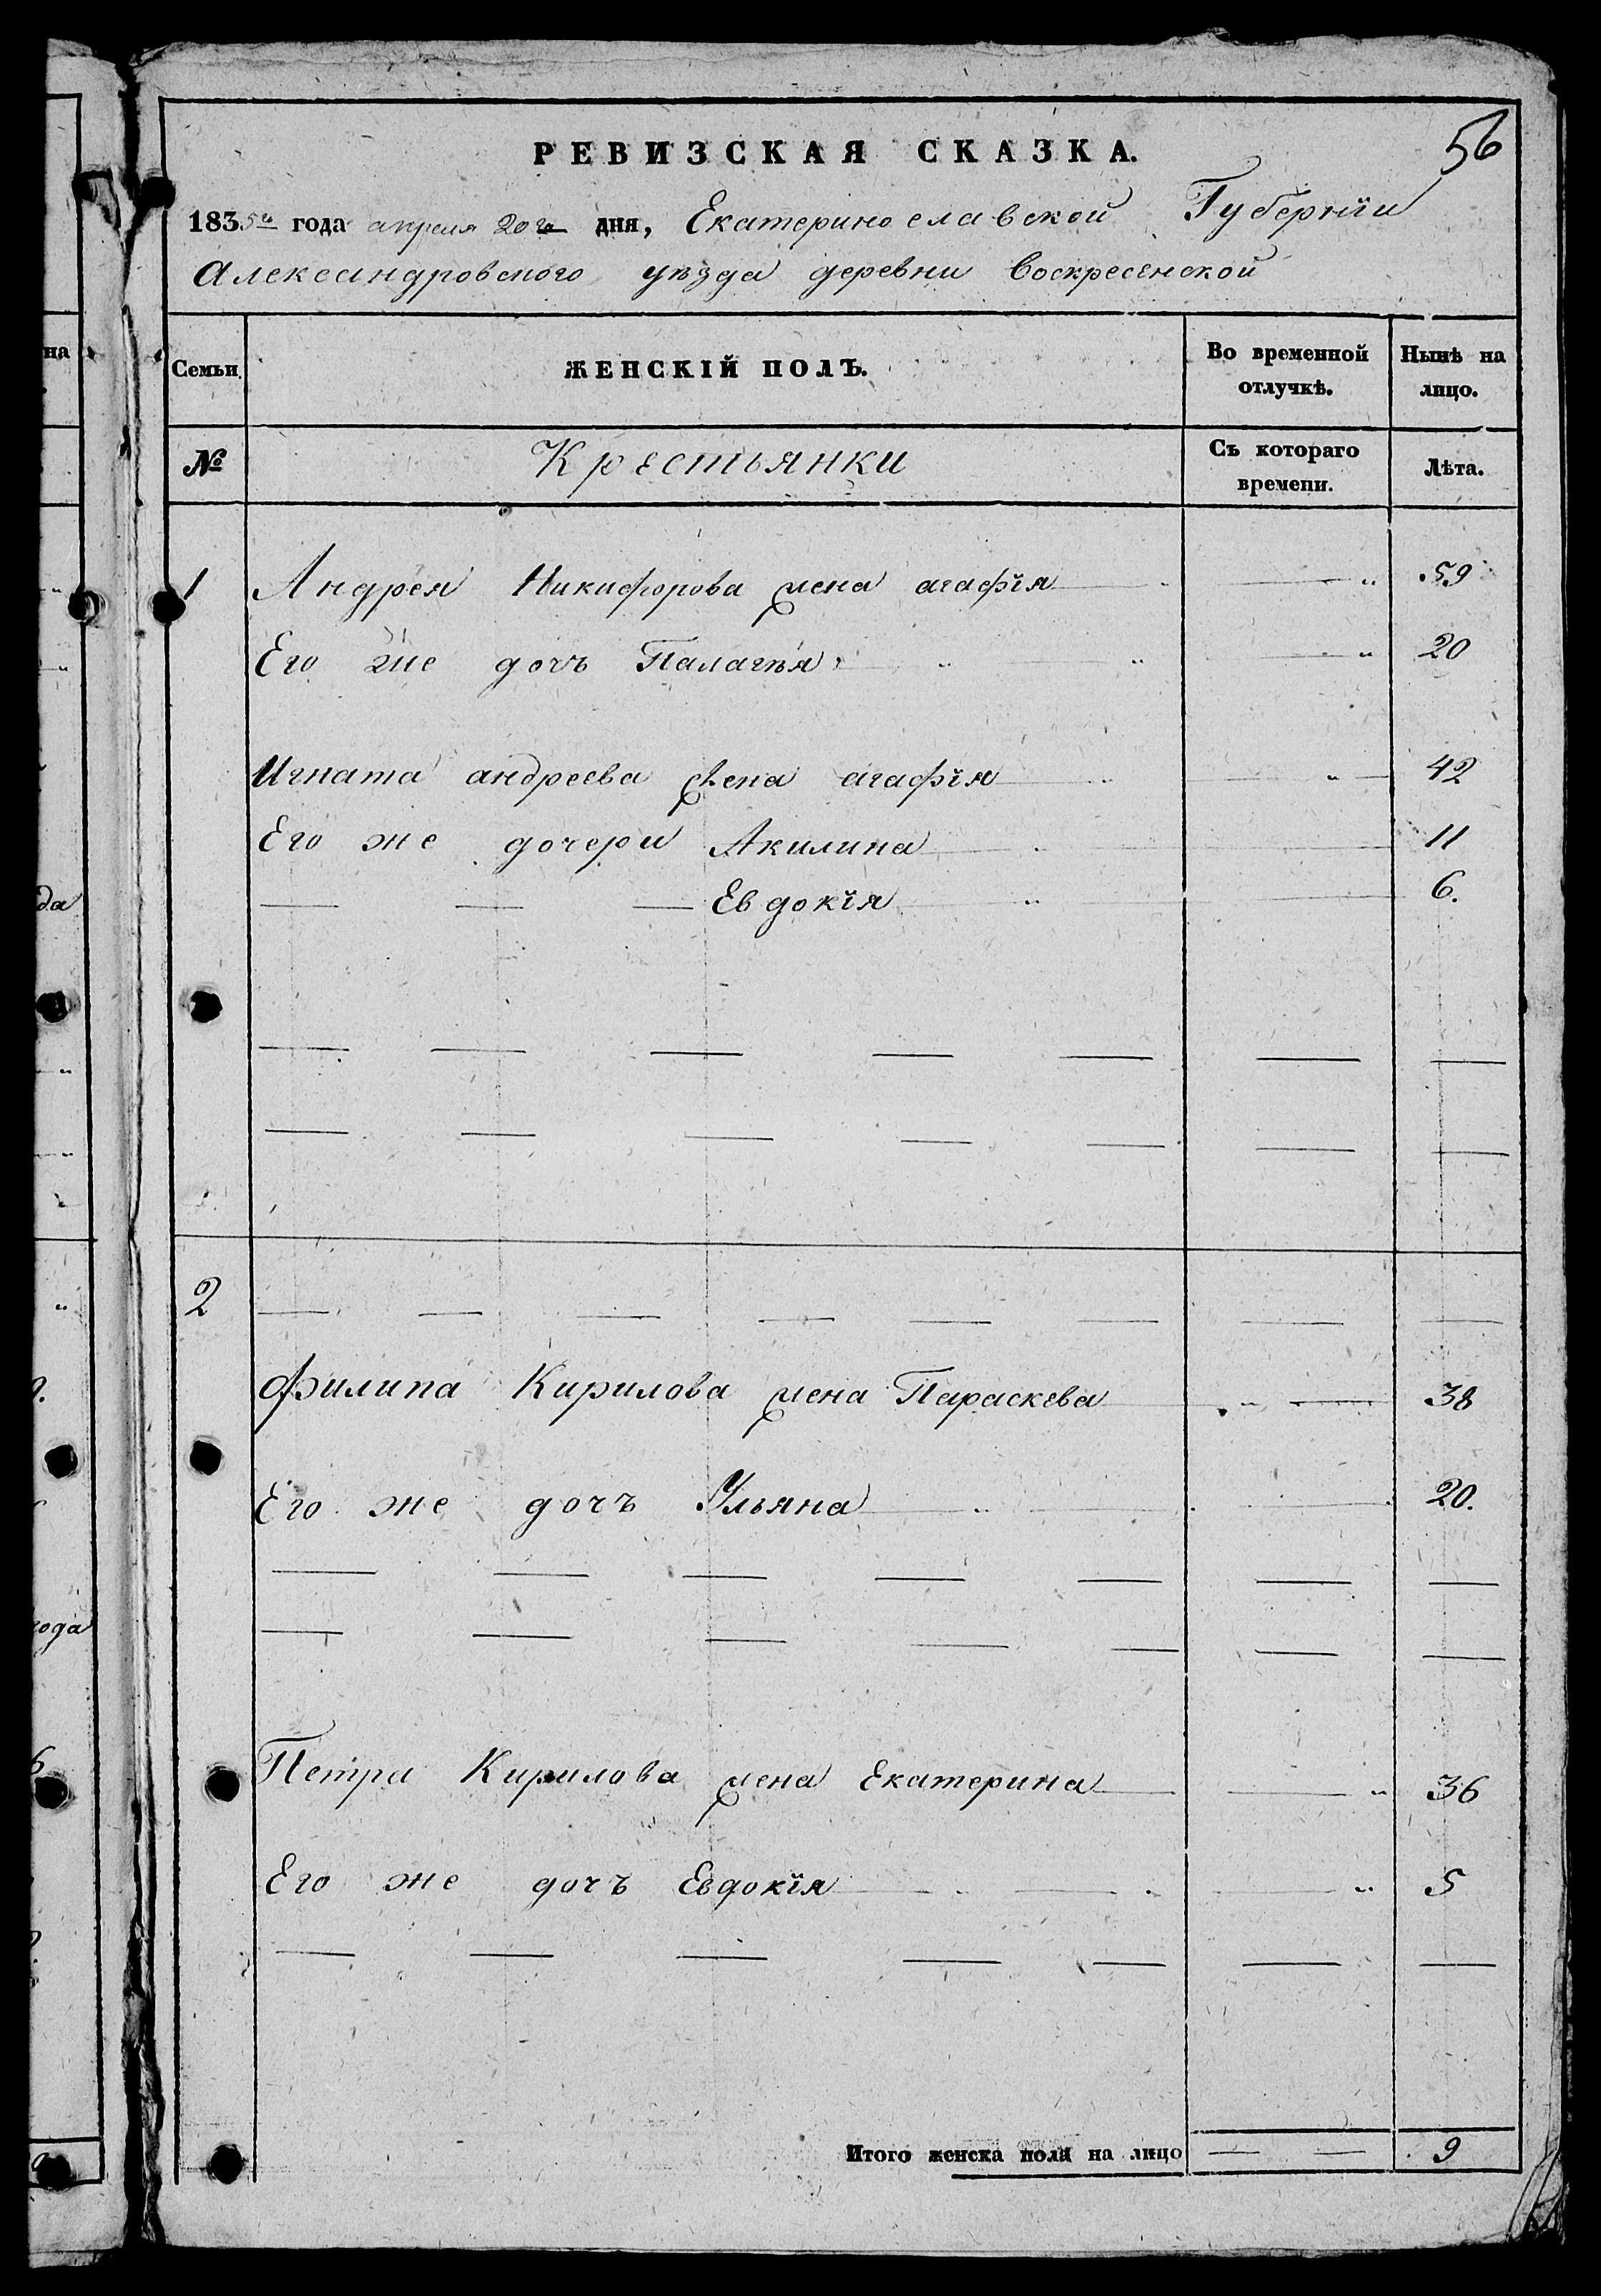 56
РЕВИЗСКАЯ СКАЗКА.
1835го года апреля 20го дня, Екатеринославской Губернїи
Александровского уѣзда деревни Воскресенской
Семьи
ЖЕНСКІЙ ПОЛЪ.
Во временной отлучкѣ.
Нынѣ на лицо.
№
Крестьянки
Съ котораго времени.
Лѣта.
1 Андрея Никифорова жена агафїя 59
Его же дочъ Палагѣя 20
Игната андреева жена агафїя 42
Его же дочери Акилина 11
Евдокїя 6.
2
Филипа Кирилова жена Параскева 38
Его же дочъ Ульяна 20.
Петра Кирилова жена Екатерина 36
Его же дочъ Евдокїя 5
Итого женска пола на лицо 9
на
да
года